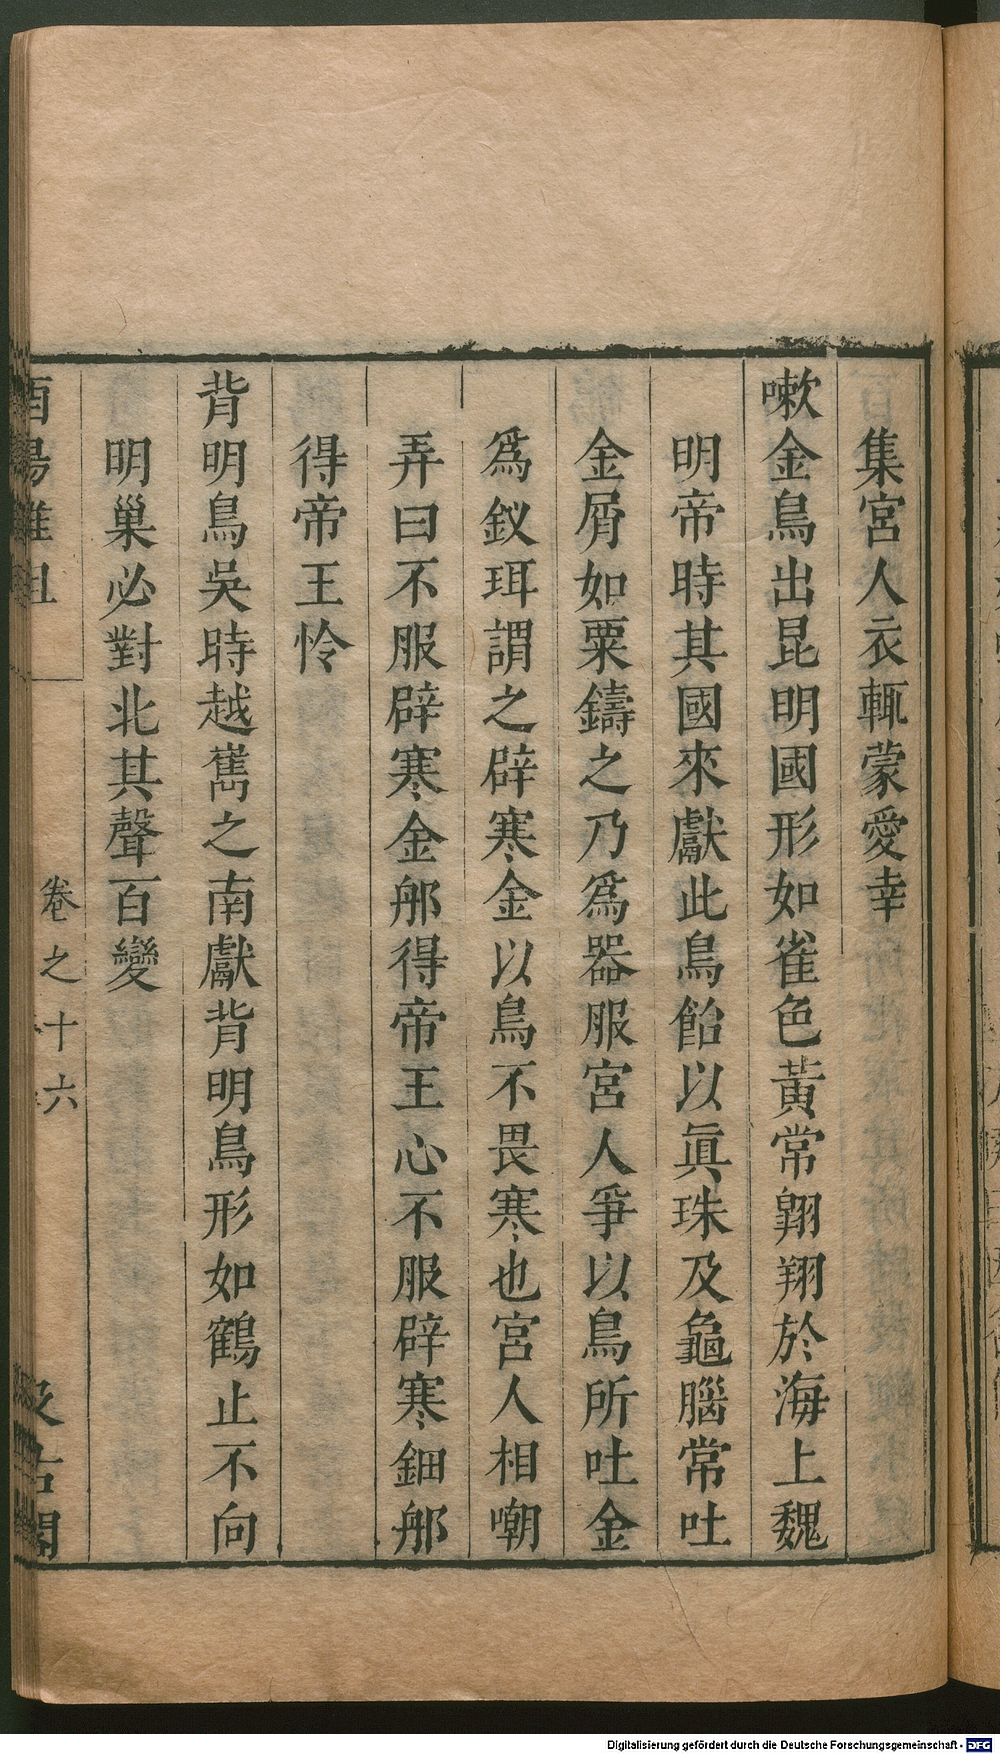 集宮人衣輒蒙愛幸
嗽金鳥出昆明國形如雀色黃常翺翔於海上魏
明帝時其國來獻此鳥飴以眞珠及龜腦常吐
金屑如粟鑄之乃爲器服宮人爭以鳥所吐金
爲釵珥謂之辟寒金以鳥不畏寒也宮人相嘲
弄曰不服辟寒金那得帝王心不服辟寒鈿那
得帝王怜
背明鳥吳時越嶲之南獻背明鳥形如鶴止不向
明巢必對北其聲百變
酉陽雜俎
卷之十六
汲古閣
Digitalisierung gefördert durch die Deutsche Forschungsgemeinschaft - DFG